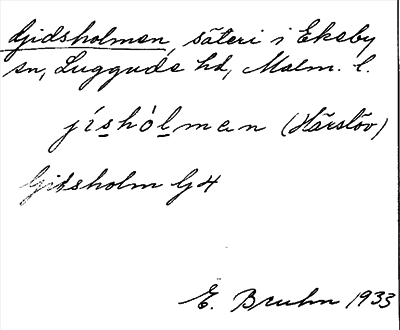 Gjidsholmen, säteri i Ekeby
sn, Luggude hd, Malm. l.
jíshòlmen (Härslöv)
Gjidsholm Gj 4
E. Bruhn 1933